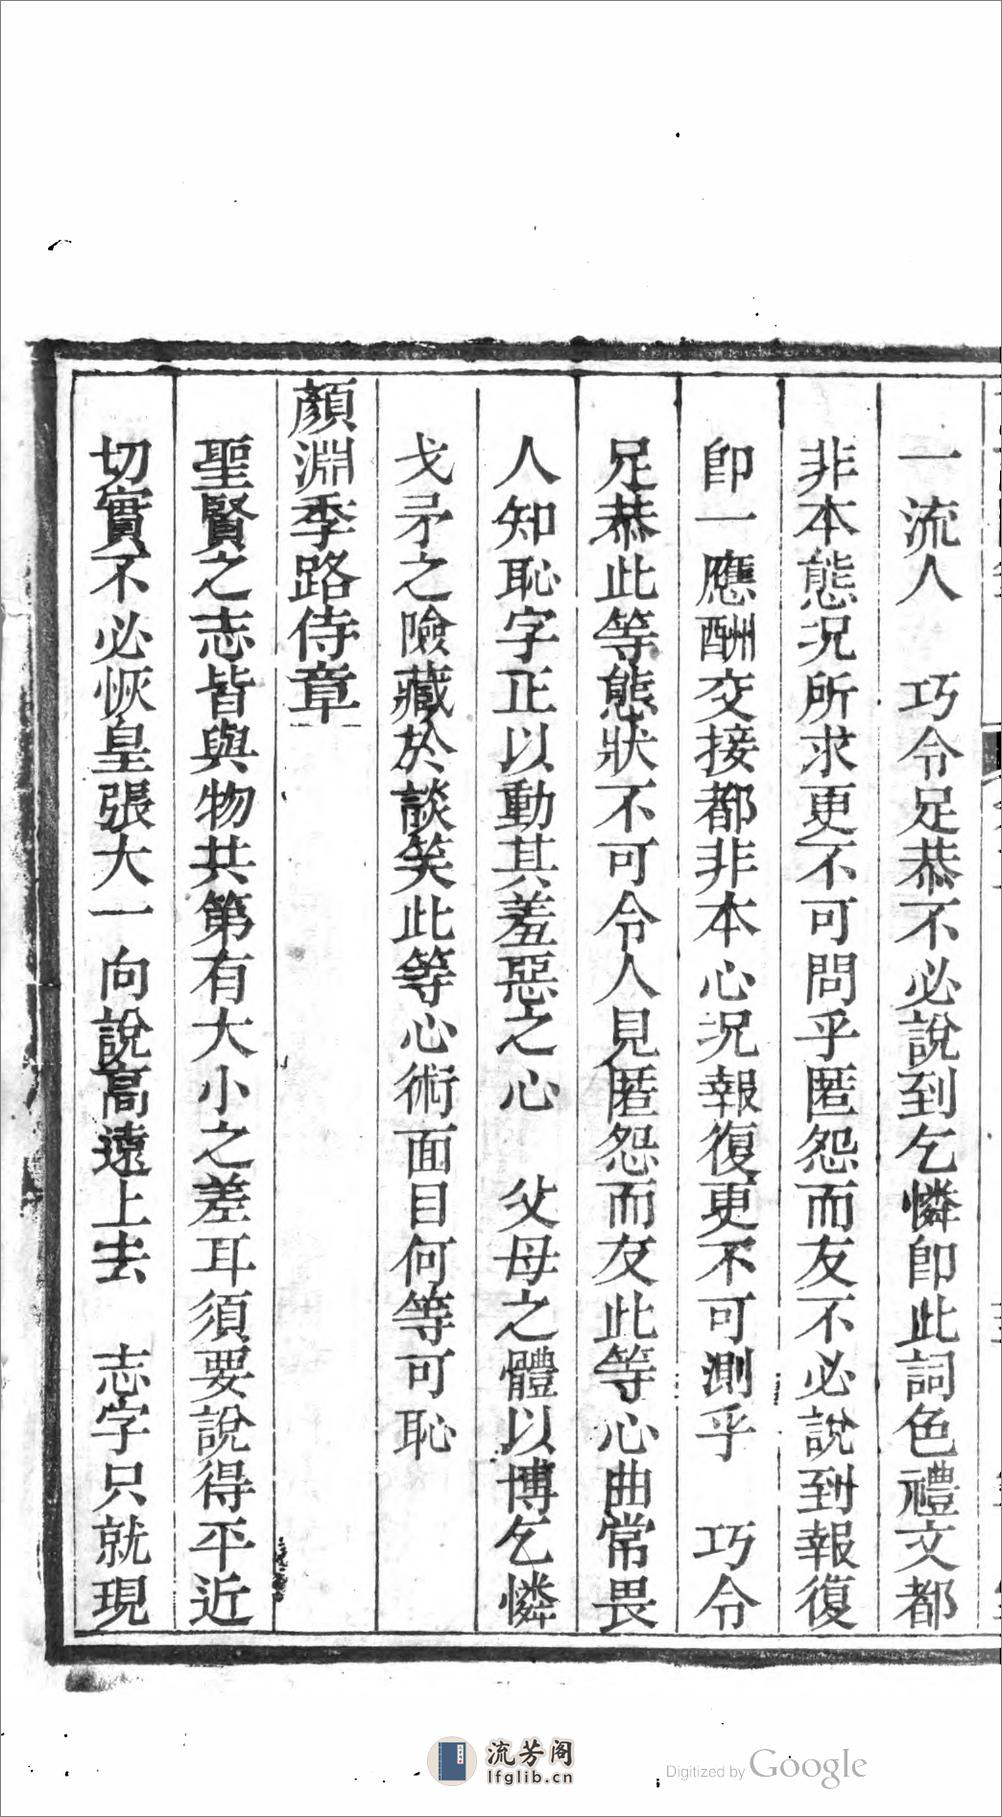 一流人　巧令足恭不必說到乞憐即此詞色禮文都
非本態況所求更不可問乎匿怨而友不必說到報復
即一應酬交接都非本心況報復更不可測乎　巧令
足恭此等態狀不可令人見匿怨而友此等心曲常畏
人知恥字正以動其羞惡之心　父母之體以博乞憐
戈矛之險藏於談笑此等心術面目何等可恥
顏淵季路侍章
聖賢之志皆與物共第有大小之差耳須要說得平近
切實不必恢皇張大一向說高遠上去　志字只就現
流芳阁
lfglib.cn
Digitized by Google